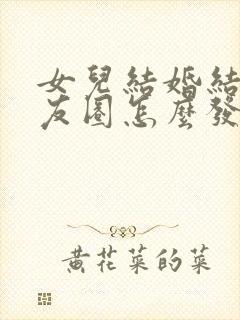 女兒結婚結
友圈怎麼發
黃花菜的菜